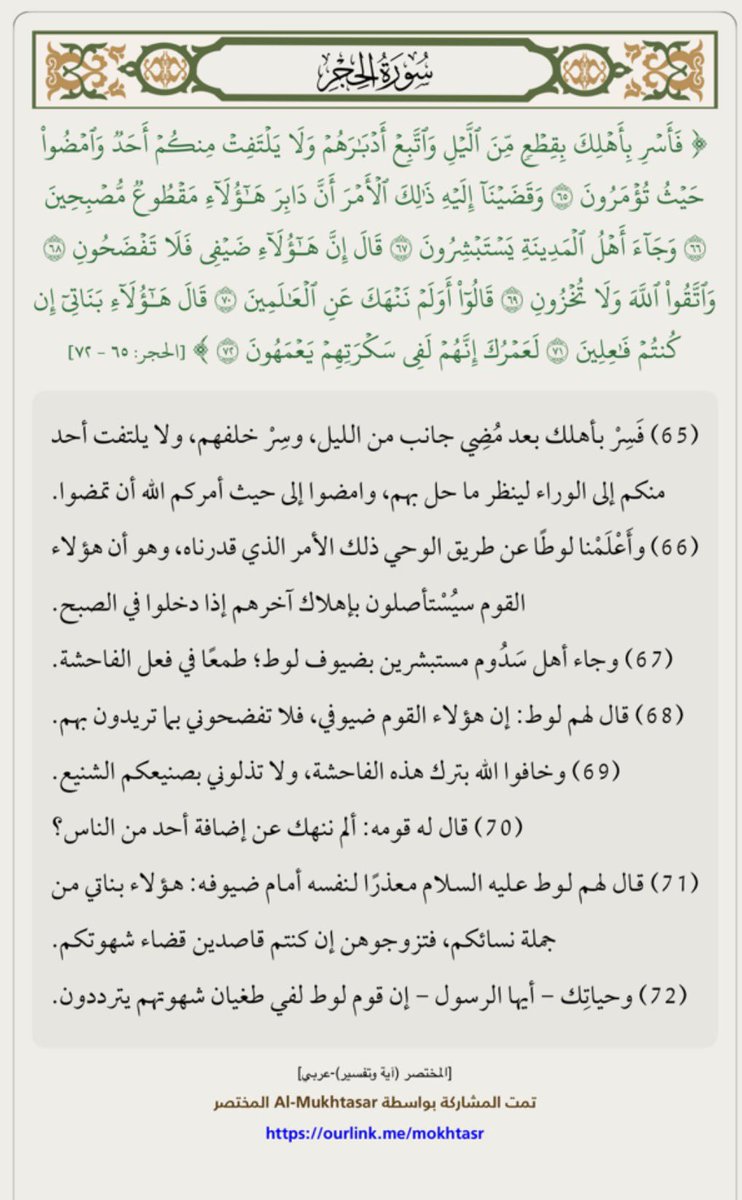 سُورَةُ الحِجْرِ
﴿ فَأَسۡرِ بِأَهۡلِكَ بِقِطۡعٖ مِّنَ ٱلَّيۡلِ وَٱتَّبِعۡ أَدۡبَٰرَهُمۡ وَلَا يَلۡتَفِتۡ مِنكُمۡ أَحَدٞ وَٱمۡضُواْ
حَيۡثُ تُؤۡمَرُونَ ٦٥ وَقَضَيۡنَآ إِلَيۡهِ ذَٰلِكَ ٱلۡأَمۡرَ أَنَّ دَابِرَ هَٰٓؤُلَآءِ مَقۡطُوعٞ مُّصۡبِحِينَ
٦٦ وَجَآءَ أَهۡلُ ٱلۡمَدِينَةِ يَسۡتَبۡشِرُونَ ٦٧ قَالَ إِنَّ هَٰٓؤُلَآءِ ضَيۡفِي فَلَا تَفۡضَحُونِ ٦٨
وَٱتَّقُواْ ٱللَّهَ وَلَا تُخۡزُونِ ٦٩ قَالُوٓاْ أَوَلَمۡ نَنۡهَكَ عَنِ ٱلۡعَٰلَمِينَ ٧٠ قَالَ هَٰٓؤُلَآءِ بَنَاتِيٓ إِن
كُنتُمۡ فَٰعِلِينَ ٧١ لَعَمۡرُكَ إِنَّهُمۡ لَفِي سَكۡرَتِهِمۡ يَعۡمَهُونَ ٧٢ ﴾ [الحجر: ٦٥ - ٧٢]
(65) فَسِرْ بأهلك بعد مُضِي جانب من الليل، وسِرْ خلفهم، ولا يلتفت أحد
منكم إلى الوراء لينظر ما حل بهم، وامضوا إلى حيث أمركم الله أن تمضوا.
(66) وأَعْلَمْنا لوطًا عن طريق الوحي ذلك الأمر الذي قدرناه، وهو أن هؤلاء
القوم سيُسْتأصلون بإهلاك آخرهم إذا دخلوا في الصبح.
(67) وجاء أهل سَدُوم مستبشرين بضيوف لوط؛ طمعًا في فعل الفاحشة.
(68) قال لهم لوط: إن هؤلاء القوم ضيوفي، فلا تفضحوني بما تريدون بهم.
(69) وخافوا الله بترك هذه الفاحشة، ولا تذلوني بصنيعكم الشنيع.
(70) قال له قومه: ألم ننهك عن إضافة أحد من الناس؟
(71) قال لهم لوط عليه السلام معذرًا لنفسه أمام ضيوفه: هؤلاء بناتي من
جملة نسائكم، فتزوجوهن إن كنتم قاصدين قضاء شهوتكم.
(72) وحياتِك – أيها الرسول – إن قوم لوط لفي طغيان شهوتهم يترددون.
[المختصر (آية وتفسير)-عربي]
تمت المشاركة بواسطة Al-Mukhtasar المختصر
https://ourlink.me/mokhtasr